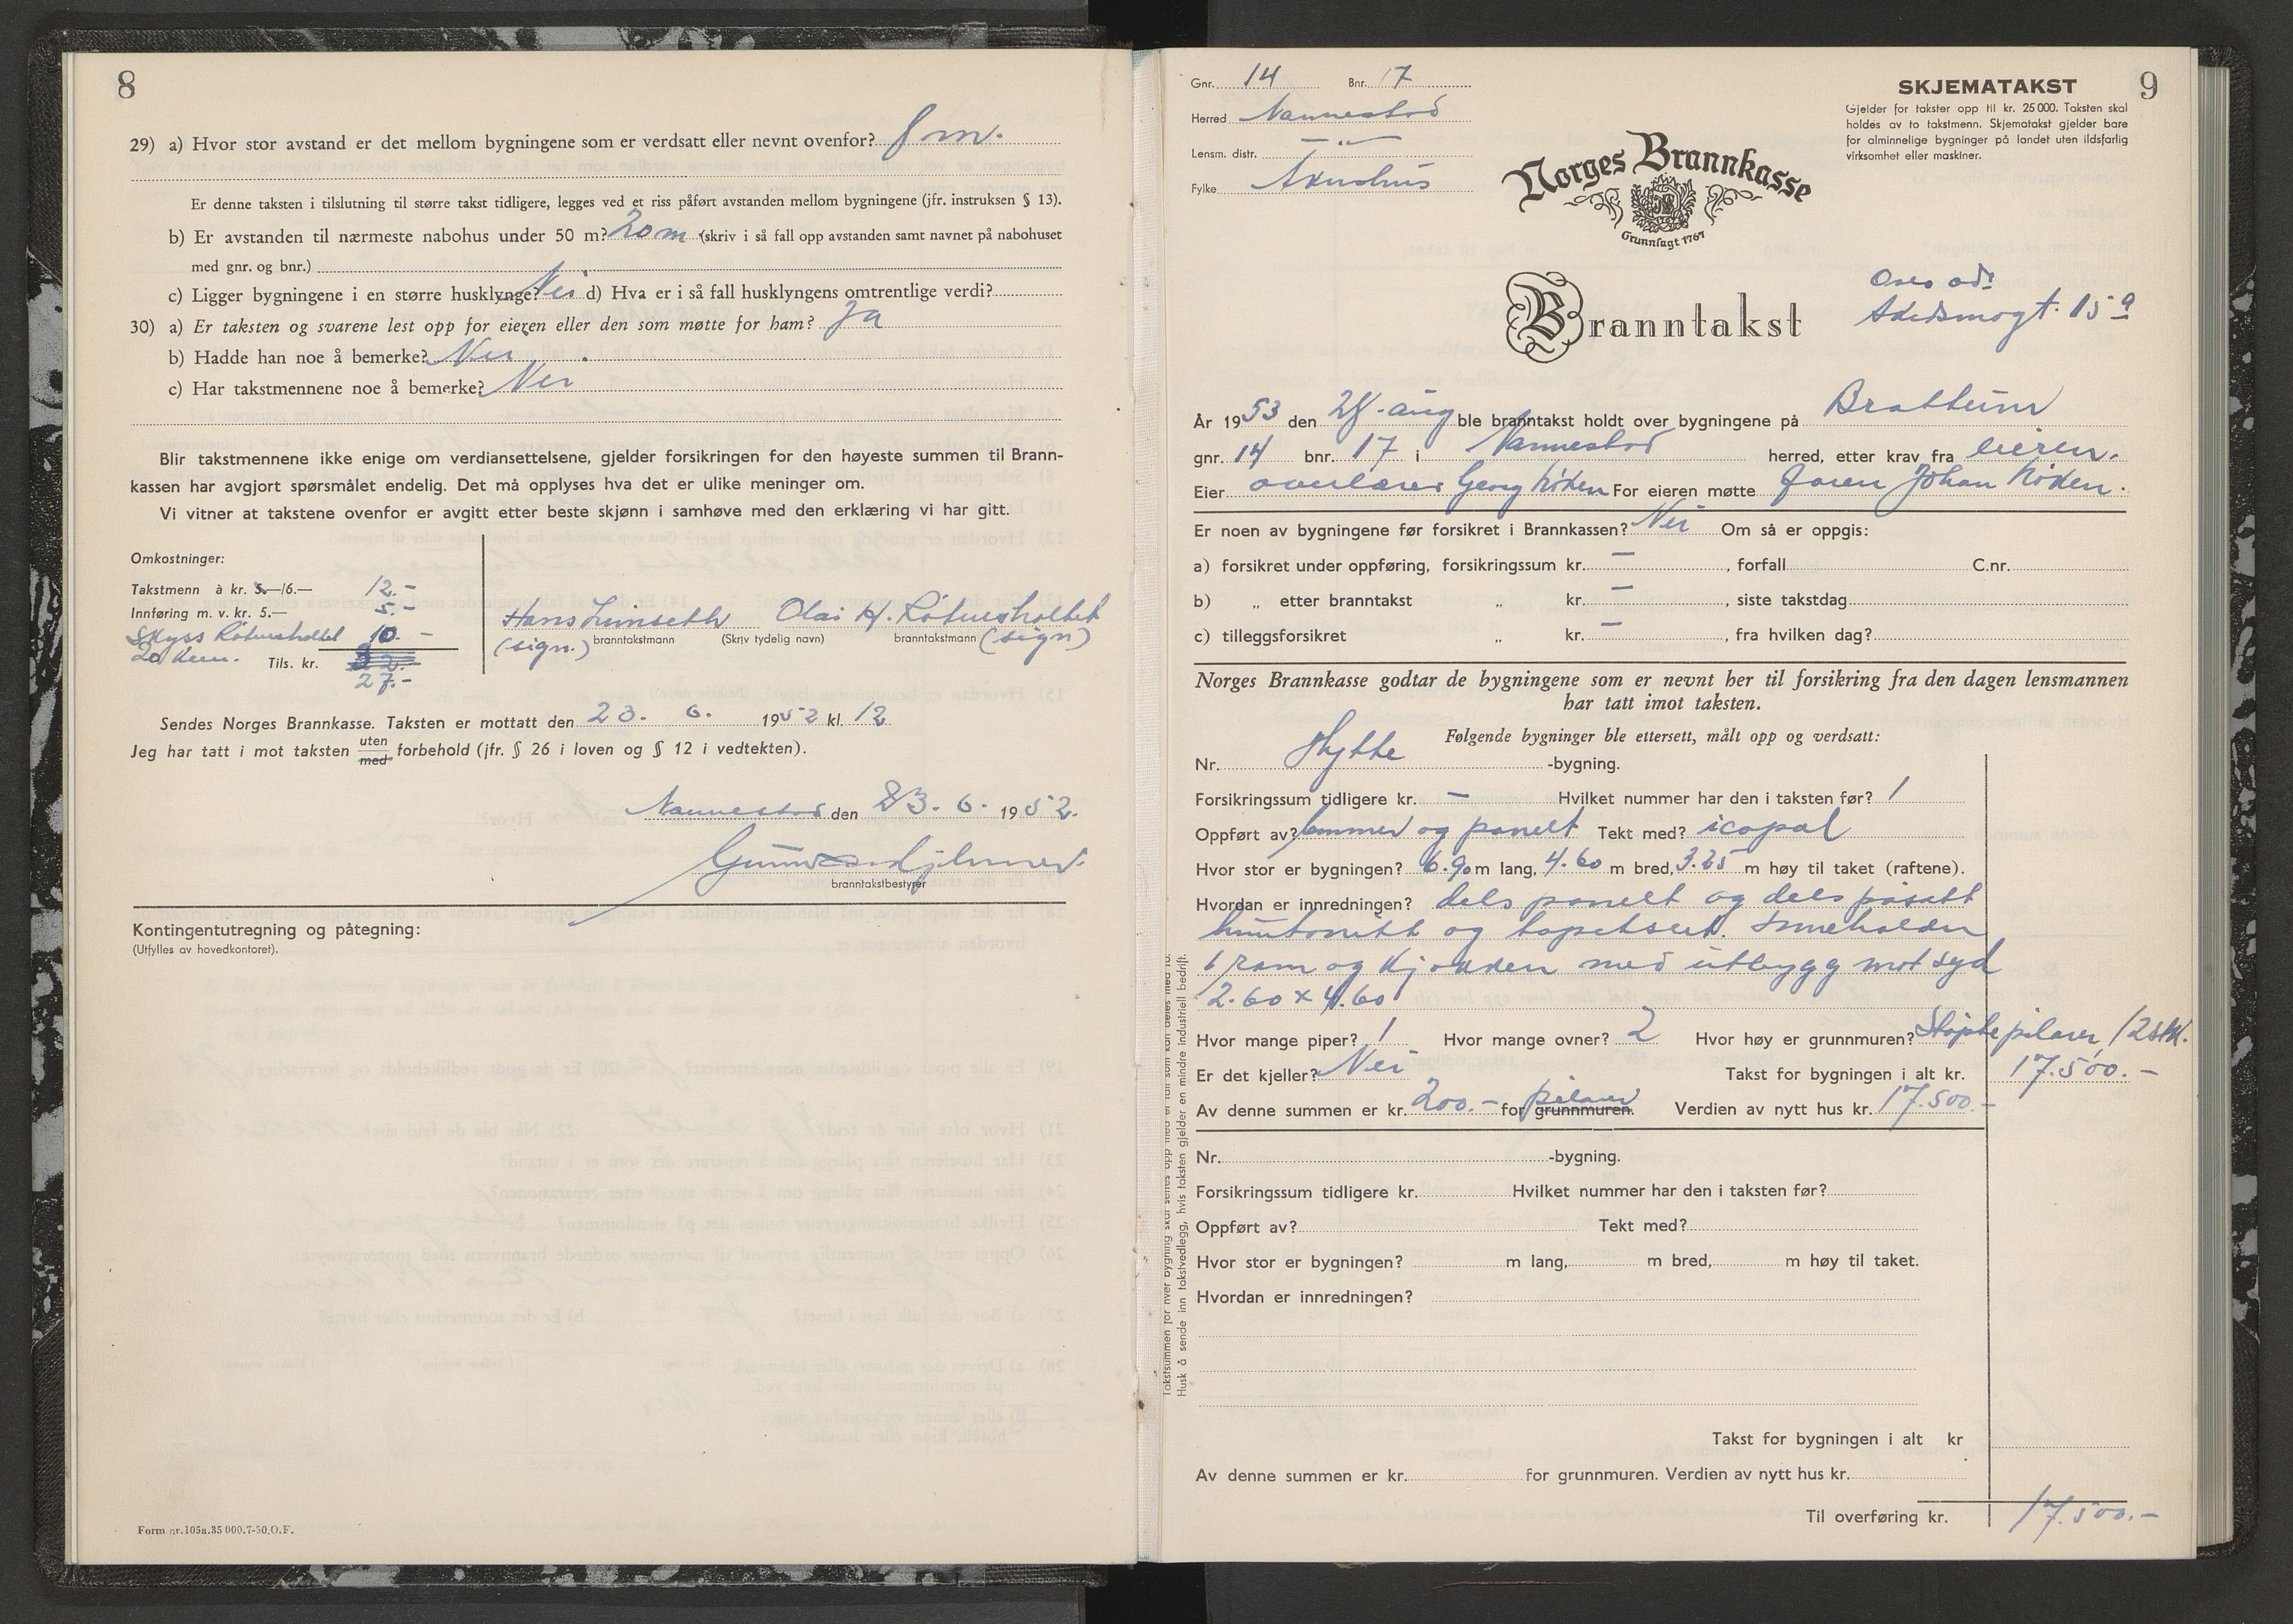 8
29) a) Hvor stor avstand er det mellom bygningene som er verdsatt eller nevnt ovenfor? 8 m.
Er denne taksten i tilslutning til større takst tidligere, legges ved et riss påført avstanden mellom bygningene (jfr. instruksen § 13).
b) Er avstanden til nærmeste nabohus under 50 m? 20 m (skriv i så fall opp avstanden samt navnet på nabohuset
med gnr. og bnr.)
c) Ligger bygningene i en større husklynge? Nei d) Hva er i så fall husklyngens omtrentlige verdi?
30) a) Er taksten og svarene lest opp for eieren eller den som møtte for ham? Ja
b) Hadde han noe å bemerke? Nei
c) Har takstmennene noe å bemerke? Nei
Blir takstmennene ikke enige om verdiansettelsene, gjelder forsikringen for den høyeste summen til Brann-
kassen har avgjort spørsmålet endelig. Det må opplyses hva det er ulike meninger om.
Vi vitner at takstene ovenfor er avgitt etter beste skjønn i samhøve med den erklæring vi har gitt.
Omkostninger:
Takstmenn à kr. 5.—/6.— 12.-
Innføring m. v. kr. 5.— 5.-
Skyss 10.-
20 km. Tils. kr. 27.-
Hans Olai H.
(sign.) branntakstmann (Skriv tydelig navn) branntakstmann (sign)
Sendes Norges Brannkasse. Taksten er mottatt den 23. 6. 1952 kl. 12
Jeg har tatt i mot taksten uten/med forbehold (jfr. § 26 i loven og § 12 i vedtekten).
Nannestad den 23. 6. 1952.
branntakstbestyrer
Kontingentutregning og påtegning:
(Utfylles av hovedkontoret).
Form nr.105a.35 000.7-50.O.F.
9
Gnr. 14 Bnr. 17
Herred Nannestad
Lensm. distr. — " —
Fylke Akershus
SKJEMATAKST
Gjelder for takster opp til kr. 25 000. Taksten skal
holdes av to takstmenn. Skjematakst gjelder bare
for alminnelige bygninger på landet uten ildsfarlig
virksomhet eller maskiner.
Norges Brannkasse
Grunnlagt 1767
Branntakst
15 a
År 1953 den 28. aug ble branntakst holdt over bygningene på Brattum
gnr. 14 bnr. 17 i Nannestad herred, etter krav fra eieren.
Eier overlærer Georg For eieren møtte faren Johan
Er noen av bygningene før forsikret i Brannkassen? Nei Om så er oppgis:
a) forsikret under oppføring, forsikringssum kr. — , forfall C.nr.
b) „ etter branntakst „ kr. — , siste takstdag
c) tilleggsforsikret „ kr. — , fra hvilken dag?
Norges Brannkasse godtar de bygningene som er nevnt her til forsikring fra den dagen lensmannen
har tatt imot taksten.
Følgende bygninger ble ettersett, målt opp og verdsatt:
Nr. Hytte -bygning.
Forsikringssum tidligere kr. — Hvilket nummer har den i taksten før? 1
Oppført av? tømmer og panelt Tekt med? icopal
Hvor stor er bygningen? 6.90 m lang, 4.60 m bred, 3.25 m høy til taket (raftene).
Hvordan er innredningen? dels panelt og dels påsatt
huntonitt og tapetsert. Inneholder
1 rom og kjøkken med utbygg mot syd
2.60 x 4.60
Hvor mange piper? 1 Hvor mange ovner? 2 Hvor høy er grunnmuren? Støpte pilarer, 12 stk.
Er det kjeller? Nei Takst for bygningen i alt kr. 17.500.-
Av denne summen er kr. 200.- for grunnmuren. pilarer Verdien av nytt hus kr. 17.500.-
Nr. -bygning.
Forsikringssum tidligere kr. Hvilket nummer har den i taksten før?
Oppført av? Tekt med?
Hvor stor er bygningen? m lang, m bred, m høy til taket.
Hvordan er innredningen?
Takst for bygningen i alt kr
Av denne summen er kr. for grunnmuren. Verdien av nytt hus kr.
Til overføring kr. 17.500.-
Husk å sende inn takstvedlegg, hvis taksten gjelder en mindre industriell bedrift.